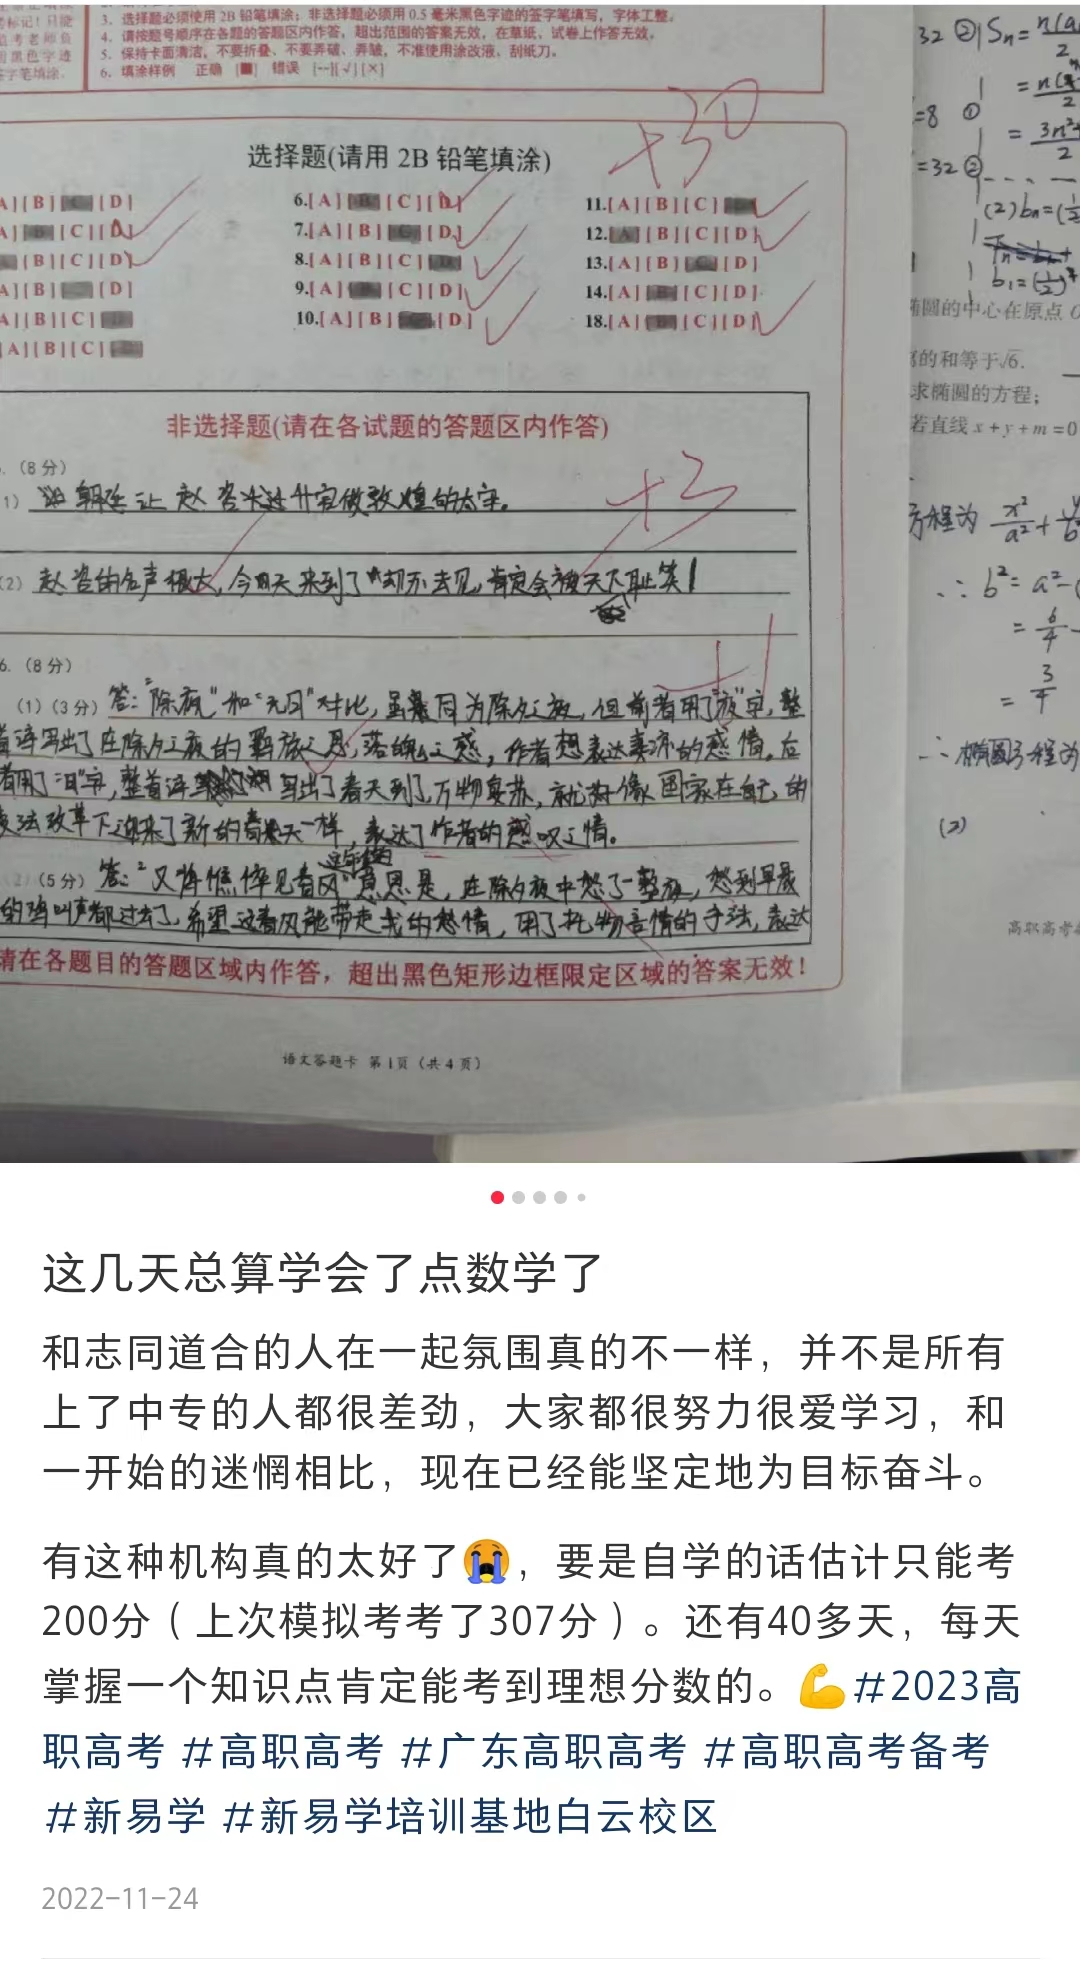 3. 选择题必须使用 2B 铅笔填涂；非选择题必须用 0.5 毫米黑色字迹的签字笔填写，字体工整。
4. 请按题号顺序在各题的答题区内作答，超出范围的答案无效，在草纸、试卷上作答无效。
5. 保持卡面清洁，不要折叠、不要弄破、弄皱，不准使用涂改液、刮纸刀。
6. 填涂样例 正确 [■] 错误 [--][√][×]
+30
选择题(请用 2B 铅笔填涂)
6.[A] [C][D]
7.[A][B] [D]
8.[A][B][C]
9.[A] [C][D]
10.[A][B] [D]
11.[A][B][C]
12. [B][C][D]
13.[A][B] [D]
14.[A] [C][D]
18.[A] [C][D]
非选择题(请在各试题的答题区内作答)
（8 分）
+3
(2) 赵咨的名声很大,今天来到了 却不去见,肯定会被天下耻笑!
6.（8 分）
(1)(3分) 答:"除夜"和"元日"对比,虽然同为除夕之夜,但前者用了"夜"字,整
首诗写出了在除夕之夜的羁旅之思,落魄之感,作者想表达凄凉的感情。后
者用了"日"字,整首诗 写出了春天到了,万物复苏,就好像国家在自己的
变法改革下迎来了新的春天一样,表达了作者的感叹之情。
(5分) 答:"又将憔悴见春风"意思是,在除夕夜中愁了一整夜,愁到早晨
的鸡叫声都过去了,希望这春风能带走我的愁情,用了托物言情的手法,表达
请在各题目的答题区域内作答，超出黑色矩形边框限定区域的答案无效！
语文答题卡 第1页（共4页）
32 ②
=8 ①
=32 ②
椭圆的中心在原点 O
的和等于√6.
求椭圆的方程;
若直线 x+y+m=0
方程为
∴ b²= a²-
∴椭圆方程为
(2)
高职高考
这几天总算学会了点数学了
和志同道合的人在一起氛围真的不一样，并不是所有
上了中专的人都很差劲，大家都很努力很爱学习，和
一开始的迷惘相比，现在已经能坚定地为目标奋斗。
有这种机构真的太好了😭，要是自学的话估计只能考
200分（上次模拟考考了307分）。还有40多天，每天
掌握一个知识点肯定能考到理想分数的。💪#2023高
职高考 #高职高考 #广东高职高考 #高职高考备考
#新易学 #新易学培训基地白云校区
2022-11-24